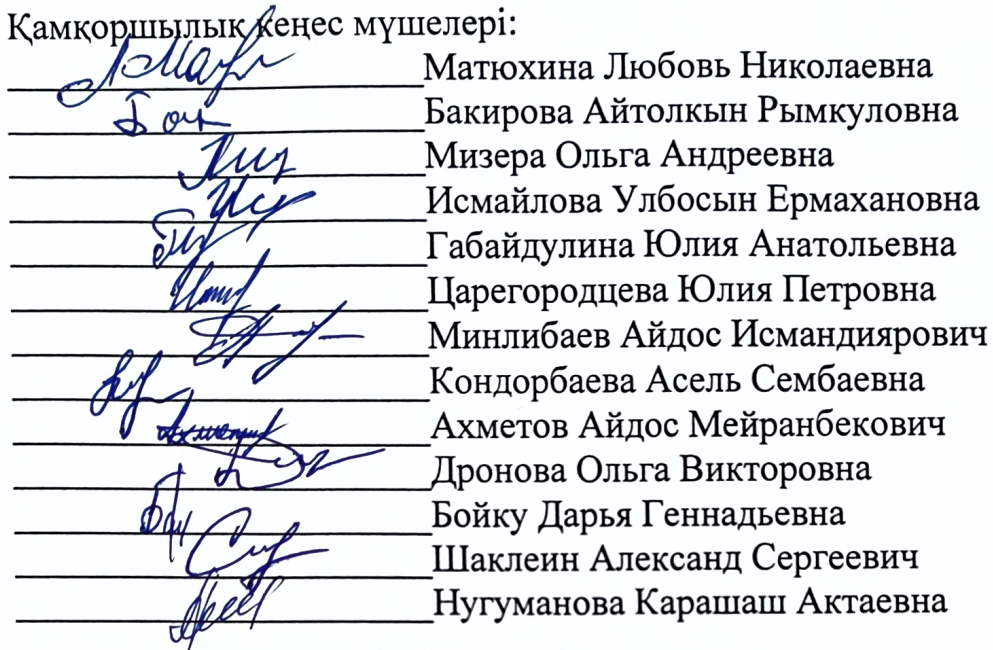 Қамқоршылық кеңес мүшелері:
Матюхина Любовь Николаевна
Бакирова Айтолкын Рымкуловна
Мизера Ольга Андреевна
Исмайлова Улбосын Ермахановна
Габайдулина Юлия Анатольевна
Царегородцева Юлия Петровна
Минлибаев Айдос Исмандиярович
Кондорбаева Асель Сембаевна
Ахметов Айдос Мейранбекович
Дронова Ольга Викторовна
Бойку Дарья Геннадьевна
Шаклеин Александ Сергеевич
Нугуманова Карашаш Актаевна